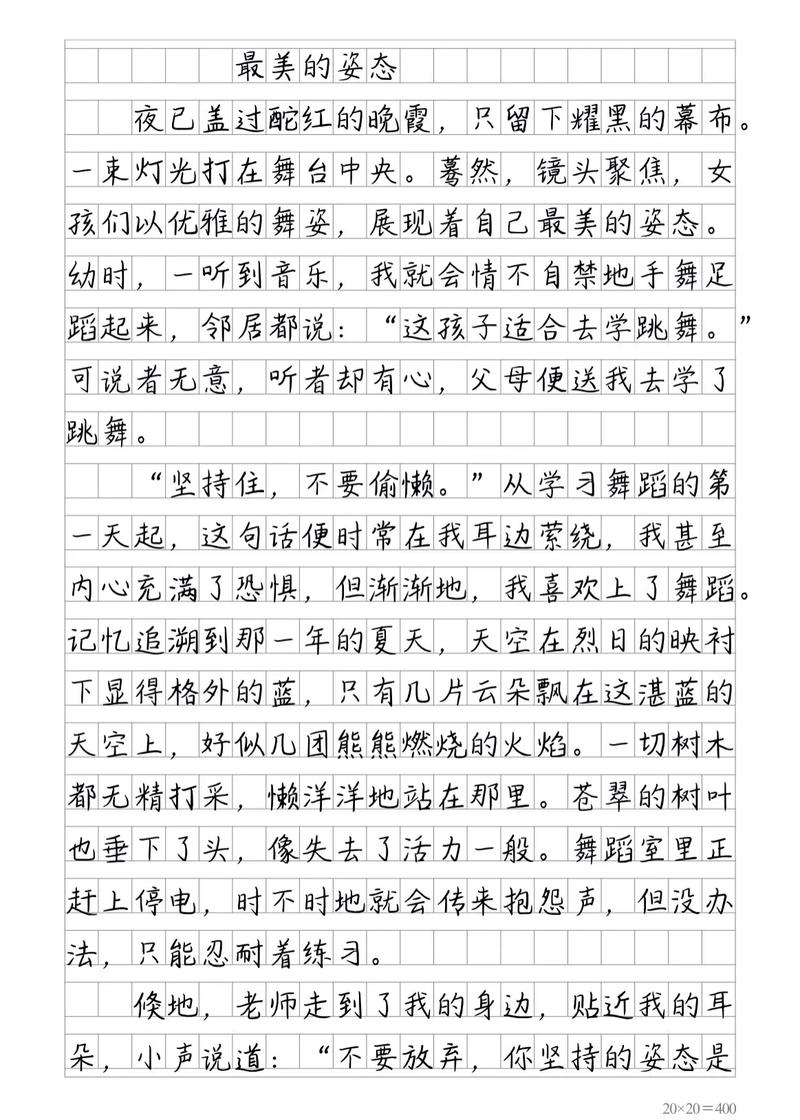 最美的姿态
夜已盖过酡红的晚霞，只留下耀黑的幕布。
一束灯光打在舞台中央。蓦然，镜头聚焦，女
孩们以优雅的舞姿，展现着自己最美的姿态。
幼时，一听到音乐，我就会情不自禁地手舞足
蹈起来，邻居都说：“这孩子适合去学跳舞。”
可说者无意，听者却有心，父母便送我去学了
跳舞。
“坚持住，不要偷懒。”从学习舞蹈的第
一天起，这句话便时常在我耳边萦绕，我甚至
内心充满了恐惧，但渐渐地，我喜欢上了舞蹈。
记忆追溯到那一年的夏天，天空在烈日的映衬
下显得格外的蓝，只有几片云朵飘在这湛蓝的
天空上，好似几团熊熊燃烧的火焰。一切树木
都无精打采，懒洋洋地站在那里。苍翠的树叶
也垂下了头，像失去了活力一般。舞蹈室里正
赶上停电，时不时地就会传来抱怨声，但没办
法，只能忍耐着练习。
倏地，老师走到了我的身边，贴近我的耳
朵，小声说道：“不要放弃，你坚持的姿态是
20×20＝400